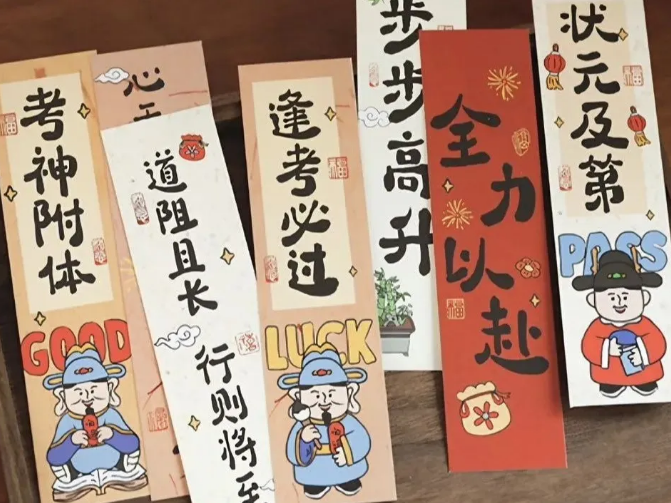 考神附体
GOOD
心
道阻且长
行则将至
逢考必过
LUCK
步步高升
全力以赴
状元及第
PASS
福
福
福
福